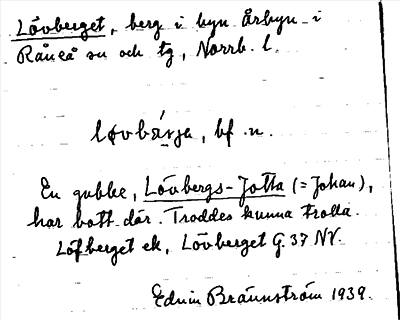 Lövberget, berg i byn Årbyn i
Råneå sn och tg, Norrb. l.
løvbárja, bf. n.
En gubbe, Lövbergs-Jotta (= Johan),
har bott där. Troddes kunna trolla.
Löfberget ek, Lövberget G. 37 NV.
Edvin Brännström 1939.